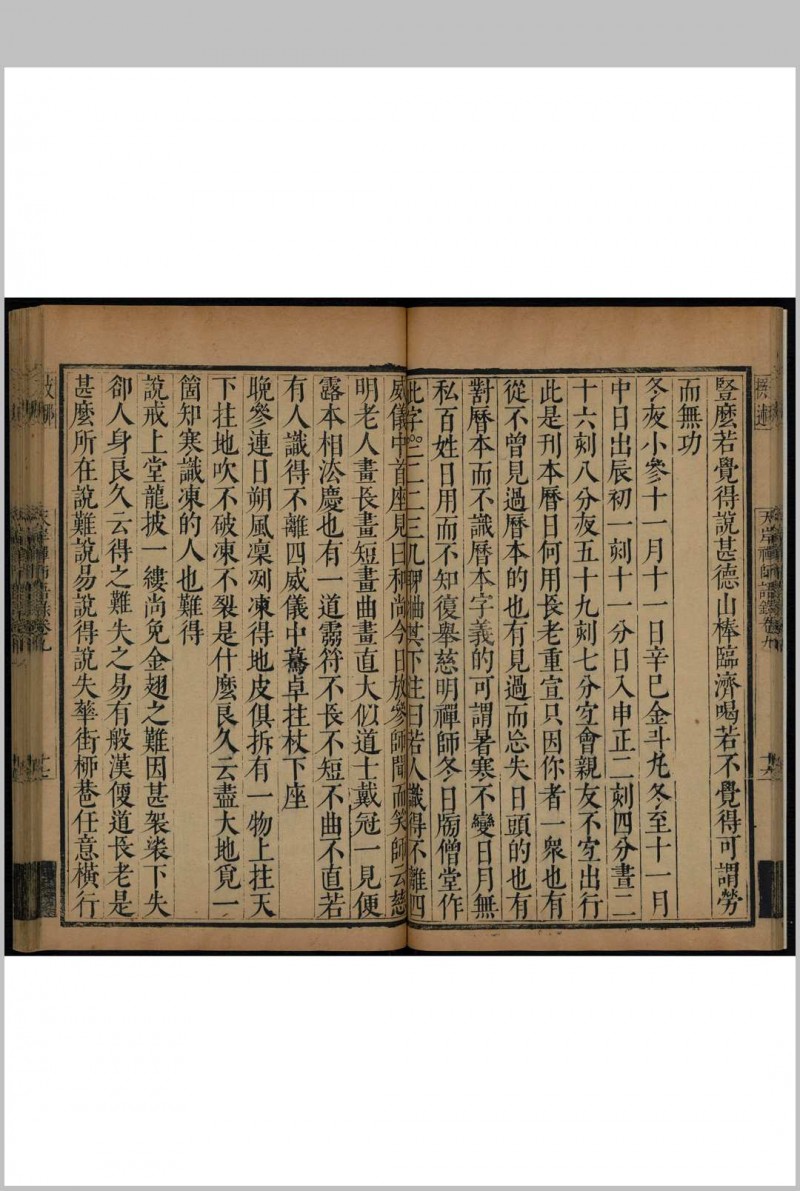 豎麼若覺得說甚德山棒臨濟喝若不覺得可謂勞
而無功
冬夜小參十一月十一日辛巳金斗九冬至十一月
中日出辰初一刻十一分日入申正二刻四分晝二
十六刻八分夜五十九刻七分宜會親友不宜出行
此是刊本曆日何用長老重宣只因你者一衆也有
從不曾見過曆本的也有見過而忘失日頭的也有
對曆本而不識曆本字義的可謂暑寒不變日月無
私百姓日用而不知復舉慈明禪師冬日牓僧堂作
此字三二二三其下注曰若人識得不離四
威儀中首座見曰和尚今日放參師聞而笑師云慈
明老人畫長畫短畫曲畫直大似道士戴冠一見便
露本相法慶也有一道靈符不長不短不曲不直若
有人識得不離四威儀中驀卓拄杖下座
晚參連日朔風凜冽凍得地皮俱拆有一物上拄天
下拄地吹不破凍不裂是什麼良久云盡大地覓一
箇知寒識凍的人也難得
說戒上堂龍披一縷尚免金翅之難因甚袈裟下失
卻人身良久云得之難失之易有般漢便道長老是
甚麼所在說難說易說得說失華街柳巷任意橫行
天岸禪師語錄卷九